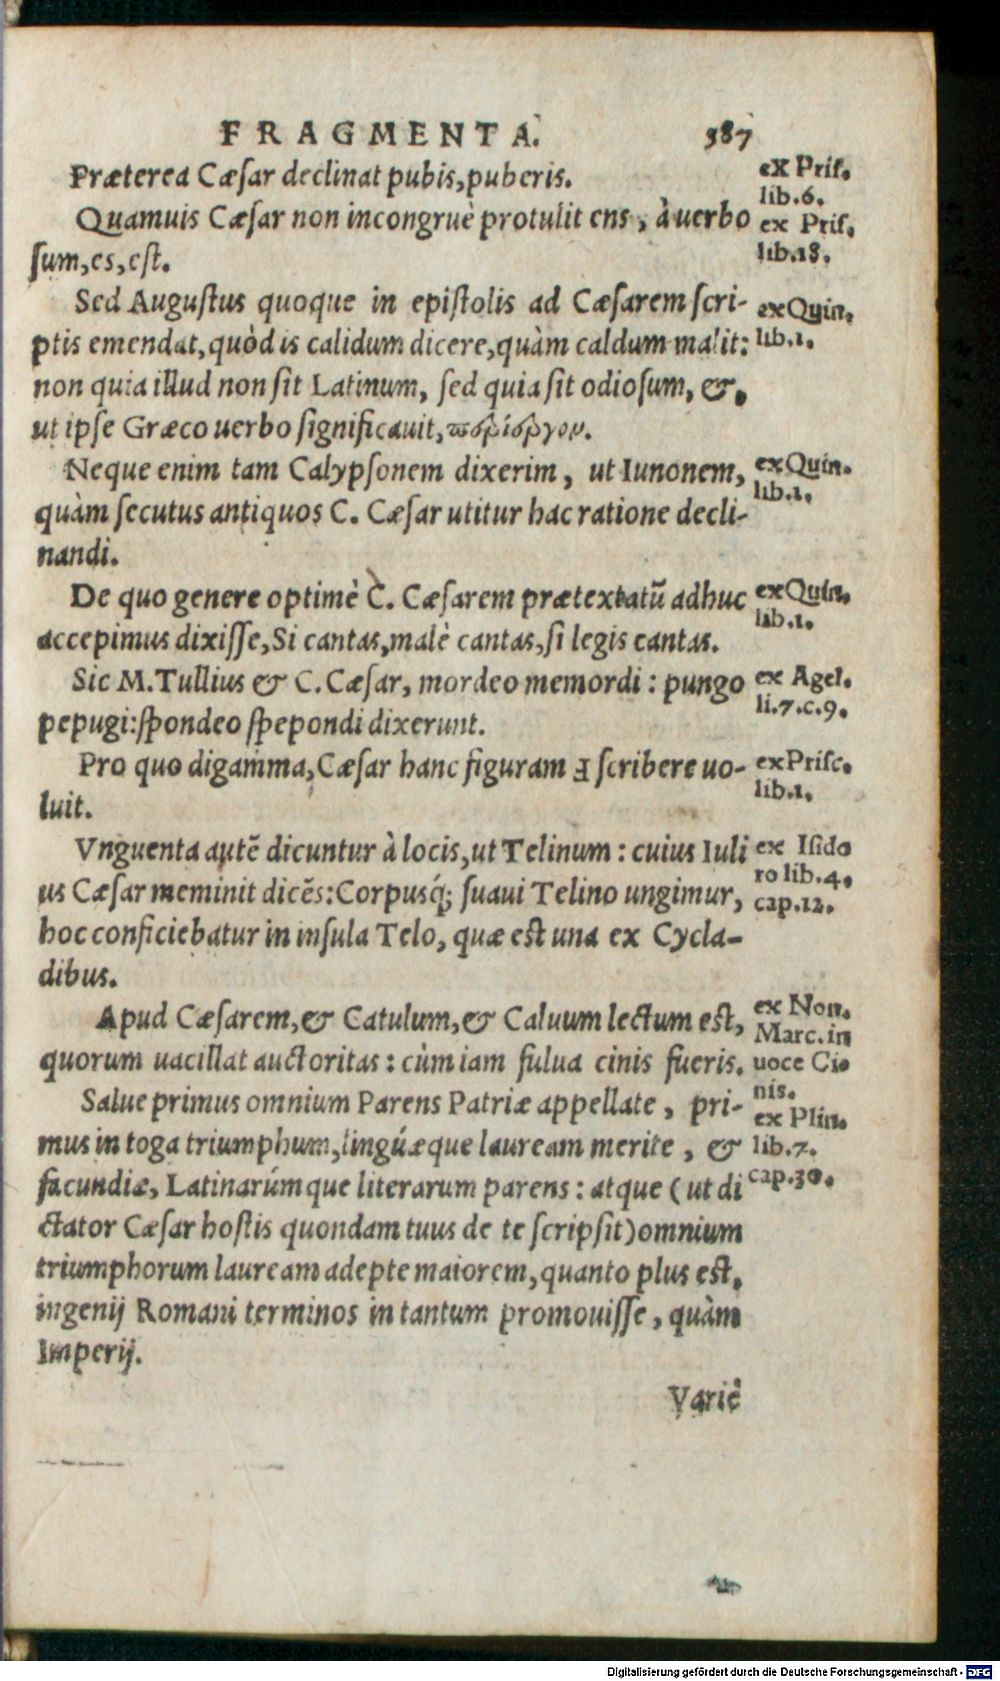 FRAGMENTA. 387
Præterea Cæsar declinat pubis, puberis.
ex Pris.
lib.6.
Quamuis Cæsar non incongruè protulit ens, à uerbo
sum, es, est.
ex Pris.
lib.18.
Sed Augustus quoque in epistolis ad Cæsarem scri-
ptis emendat, quòd is calidum dicere, quàm caldum malit:
non quia illud non sit Latinum, sed quia sit odiosum, &,
ut ipse Græco uerbo significauit, περίεργον.
ex Quin.
lib.1.
Neque enim tam Calypsonem dixerim, ut Iunonem,
quàm secutus antiquos C. Cæsar utitur hac ratione decli-
nandi.
ex Quin.
lib.1.
De quo genere optimè C. Cæsarem prætextatũ adhuc
accepimus dixisse, Si cantas, malè cantas, si legis cantas.
ex Quin.
lib.1.
Sic M. Tullius & C. Cæsar, mordeo memordi: pungo
pepugi: spondeo spepondi dixerunt.
ex Agel.
li.7.c.9.
Pro quo digamma, Cæsar hanc figuram Ⅎ scribere uo-
luit.
ex Prisc.
lib.1.
Vnguenta autẽ dicuntur à locis, ut Telinum: cuius Iuli
us Cæsar meminit dicẽs: Corpusq́; suaui Telino ungimur,
hoc conficiebatur in insula Telo, quæ est una ex Cycla-
dibus.
ex Isido
ro lib.4.
cap.12.
Apud Cæsarem, & Catulum, & Caluum lectum est,
quorum uacillat auctoritas: cùm iam fulua cinis fueris.
ex Non.
Marc. in
uoce Ci-
nis.
Salue primus omnium Parens Patriæ appellate, pri-
mus in toga triumphum, linguæque lauream merite, &
facundiæ, Latinarúmque literarum parens: atque (ut di
ctator Cæsar hostis quondam tuus de te scripsit) omnium
triumphorum lauream adepte maiorem, quanto plus est,
ingenij Romani terminos in tantum promouisse, quàm
Imperij.
ex Plin.
lib.7.
cap.30.
Variè
Digitalisierung gefördert durch die Deutsche Forschungsgemeinschaft - DFG